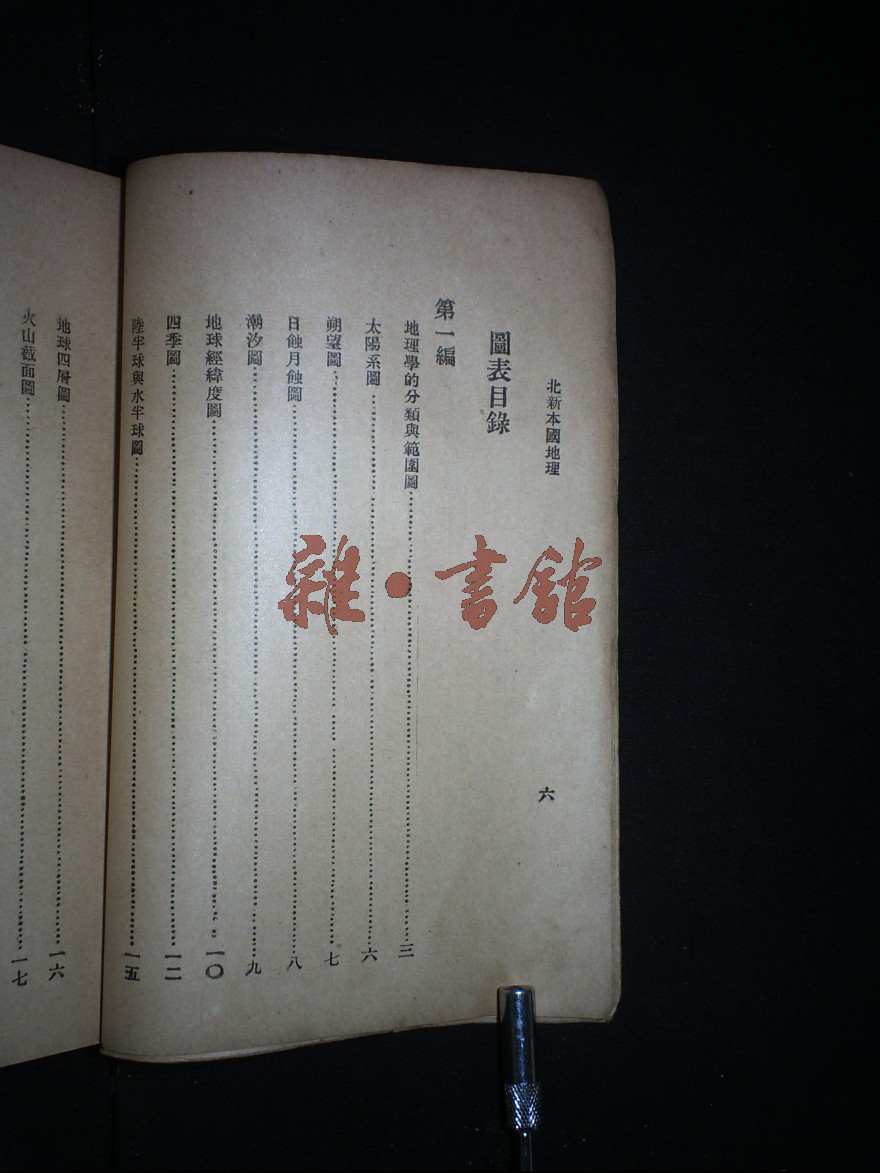 北新本國地理
六
圖表目錄
第一編
地理學的分類與範圍圖……三
太陽系圖……六
朔望圖……七
日蝕月蝕圖……八
潮汐圖……九
地球經緯度圖……一〇
四季圖……一二
陸半球與水半球圖……一五
地球四層圖……一六
火山截面圖……一七
雜·書館